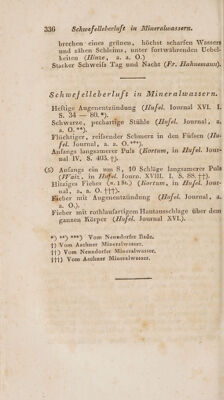 336 Schwefelleberluft in Mineralwassern.
brechen einer grünen, höchst scharfen Wassers
und zähen Schleims, unter fortwährenden Uebel-
keiten (Hinze, a. a. O.)
Starker Schweifs Tag und Nacht (Fr. Hahnemann).
Schwefelleberluft in Mineralwassern.
Heftige Augenentzündung (Hufel. Journal XVI. I.
S. 34 — 80.*).
Schwarze, pechartige Stühle (Hufel. Journal, a.
a. O. **).
Flüchtiger, reifsender Schmerz in den Füfsen (Hu-
fel. Journal, a. a. O.***).
Anfangs langsamerer Puls (Kortum, in Hufel. Jour-
nal IV. S. 403. †).
(5) Anfangs ein um 8, 10 Schläge langsamerer Puls
in Hufel. Journ. XVIII. I. S. 88. ††).
Hitziges Fieber (Kortum, in Hufel. Jour-
nal, a. a. O. †††).
Fieber mit Augenentzündung (Hufel. Journal, a.
a. O.).
Fieber mit rothlaufartigem Hautausschlage über dem
ganzen Körper (Hufel. Journal XVI.).
*) **) ***) Vom Nenndorfer Bade.
†) Vom Aachner Mineralwasser.
††) Vom Nenndorfer Mineralwasser.
†††) Vom Aachner Mineralwasser.